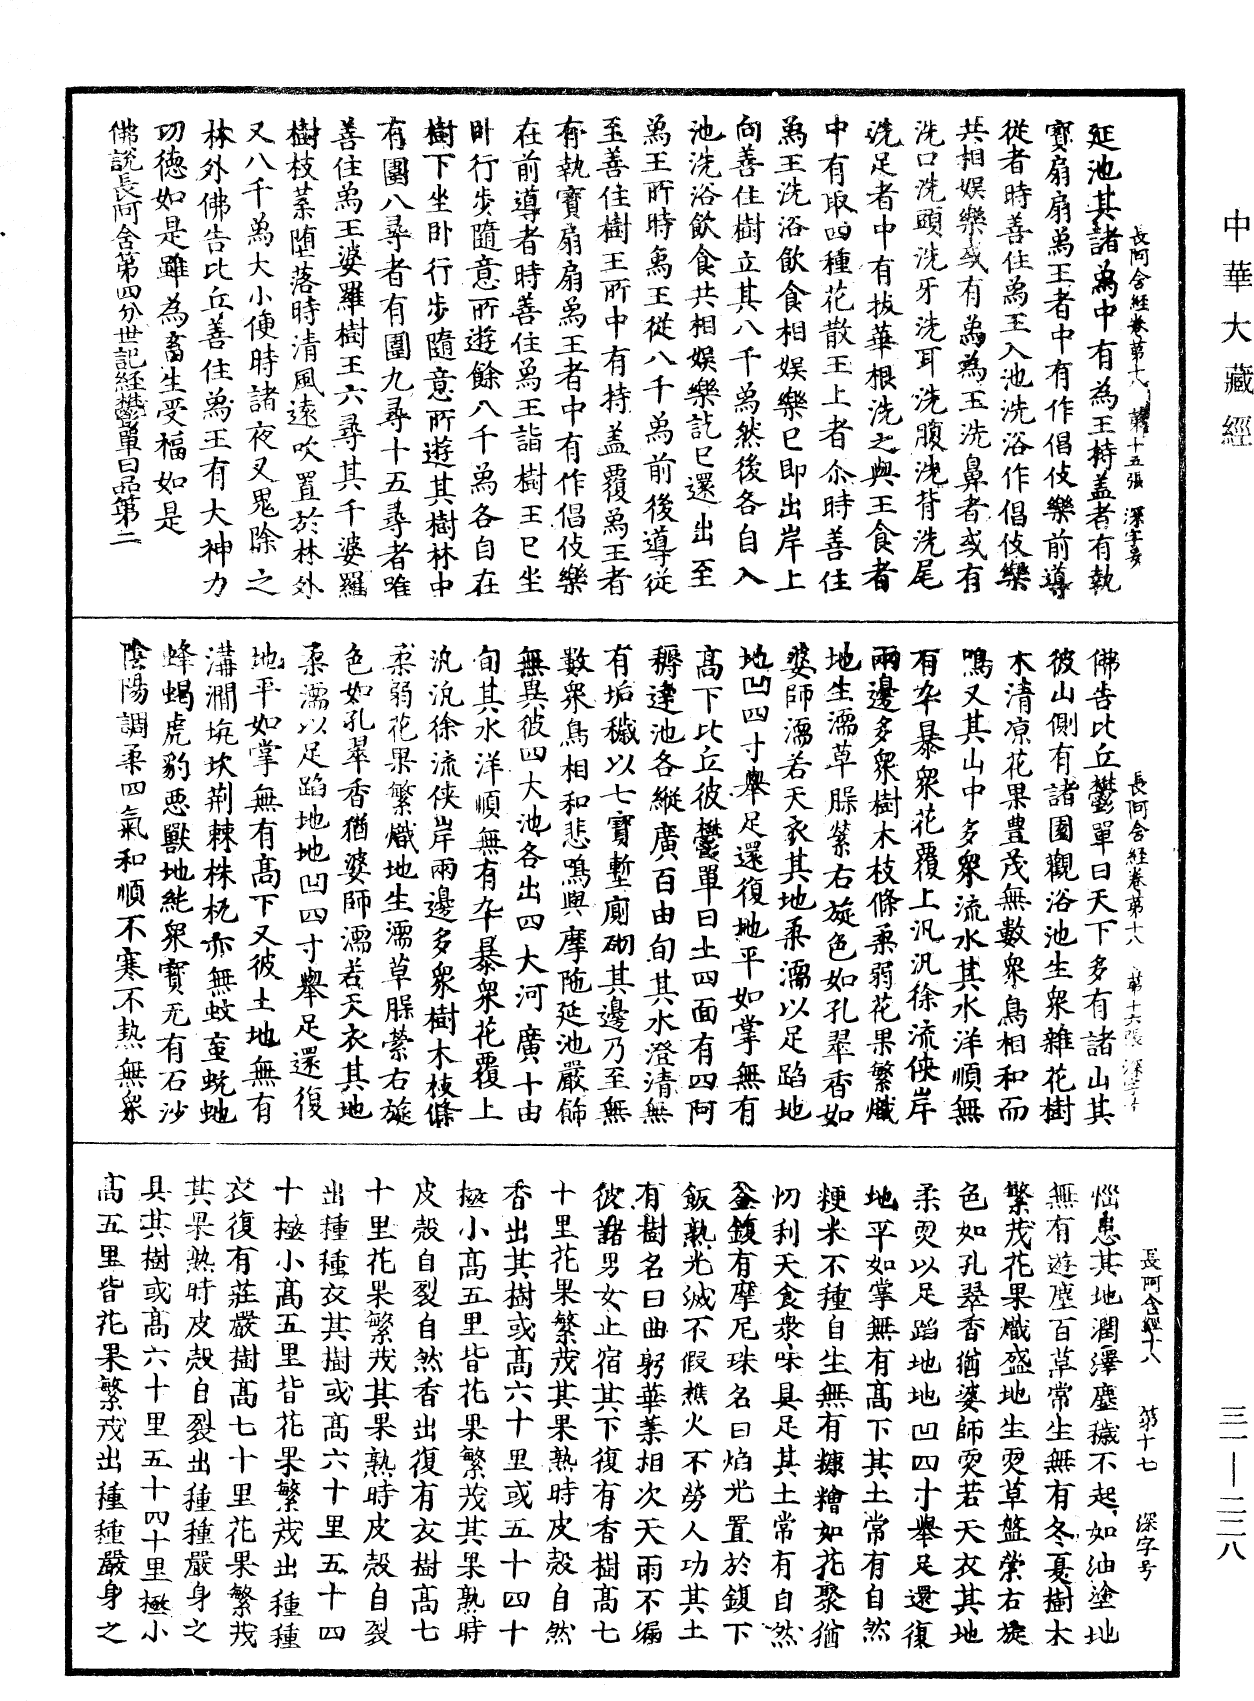 中華大藏經
三一—二二八
長阿含經卷第十八 第十五張 深字号
延池其諸象中有為王持盖者有執
寶扇扇象王者中有作倡伎樂前導
從者時善住象王入池洗浴作倡伎樂
共相娱樂或有象為王洗鼻者或有
洗口洗頭洗牙洗耳洗腹洗背洗尾
洗足者中有拔華根洗之與王食者
中有取四種花散王上者尒時善住
象王洗浴飲食相娱樂已即出岸上
向善住樹立其八千象然後各自入
池洗浴飲食共相娱樂訖已還出至
象王所時象王從八千象前後導從
至善住樹王所中有持盖覆象王者
有執寶扇扇象王者中有作倡伎樂
在前導者時善住象王詣樹王已坐
卧行步隨意所遊餘八千象各自在
樹下坐卧行步隨意所遊其樹林中
有圍八尋者有圍九尋十五尋者唯
善住象王婆羅樹王六尋其千婆羅
樹枝葉堕落時清風遠吹置於林外
又八千象大小便時諸夜叉鬼除之
林外佛告比丘善住象王有大神力
功德如是雖為畜生受福如是
佛說長阿含第四分世記經欝單曰品第二
長阿含經卷第十八 第十六張 深字号
佛告比丘欝單曰天下多有諸山其
彼山側有諸園觀浴池生衆雜花樹
木清凉花果豊茂無數衆鳥相和而
鳴又其山中多衆流水其水洋順無
有卒暴衆花覆上汎汎徐流俠岸
兩邊多衆樹木枝條柔弱花果繁熾
地生濡草縣縈右旋色如孔翠香如
婆師濡若天衣其地柔濡以足蹈地
地凹四寸舉足還復地平如掌無有
高下比丘彼欝單曰土四面有四阿
耨達池各縱廣百由旬其水澄清無
有垢穢以七寶塹廁砌其邊乃至無
數衆鳥相和悲鳴與摩陁延池嚴飾
無異彼四大池各出四大河廣十由
旬其水洋順無有卒暴衆花覆上
汎汎徐流俠岸兩邊多衆樹木枝條
柔弱花果繁熾地生濡草縣縈右旋
色如孔翠香猶婆師濡若天衣其地
柔濡以足蹈地地凹四寸舉足還復
地平如掌無有高下又彼土地無有
溝澗坑坎荆棘株杌亦無蚊虻蚖虵
蜂蝎虎豹惡獸地純衆寶无有石沙
陰陽調柔四氣和順不寒不熱無衆
長阿含經十八 第十七 深字号
惱患其地潤澤塵穢不起如油塗地
無有遊塵百草常生無有冬夏樹木
繁茂花果熾盛地生耎草盤縈右旋
色如孔翠香猶婆師耎若天衣其地
柔耎以足蹈地地凹四寸舉足還復
地平如掌無有高下其土常有自然
粳米不種自生無有糠糩如花聚猶
忉利天食衆味具足其土常有自然
釜鍑有摩尼珠名曰焰光置於鍑下
飯熟光滅不假樵火不勞人功其土
有樹名曰曲躬華葉相次天雨不漏
彼諸男女止宿其下復有香樹高七
十里花果繁茂其果熟時皮殼自然
香出其樹或高六十里或五十四十
極小高五里皆花果繁茂其果熟時
皮殼自裂自然香出復有衣樹高七
十里花果繁茂其果熟時皮殼自裂
出種種衣其樹或高六十里五十四
十極小高五里皆花果繁茂出種種
衣復有莊嚴樹高七十里花果繁茂
其果熟時皮殼自裂出種種嚴身之
具其樹或高六十里五十四十里極小
高五里皆花果繁茂出種種嚴身之